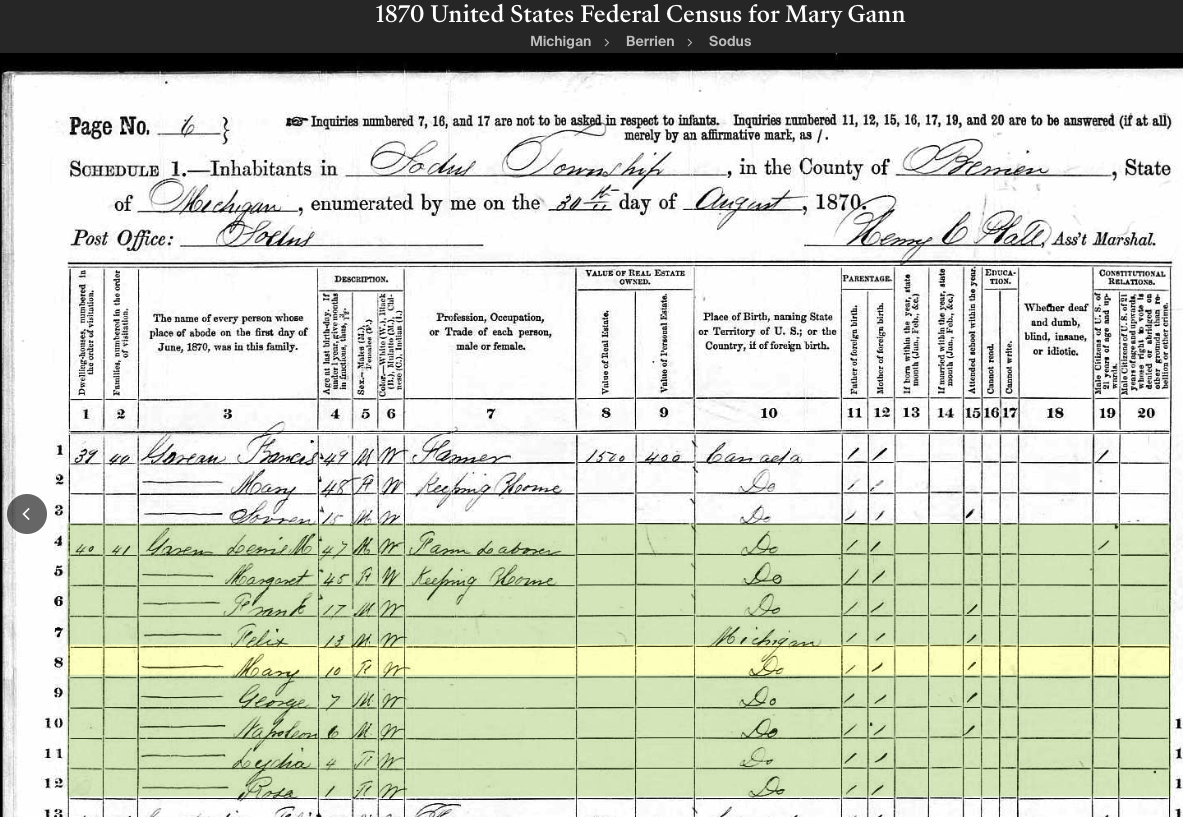 1870 United States Federal Census for Mary Gann
Michigan > Berrien > Sodus
Page No. 6 }
☞ Inquiries numbered 7, 16, and 17 are not to be asked in respect to infants. Inquiries numbered 11, 12, 15, 16, 17, 19, and 20 are to be answered (if at all)
merely by an affirmative mark, as /.
SCHEDULE 1.—Inhabitants in Sodus Township, in the County of Berrien, State
of Michigan, enumerated by me on the 30th day of August, 1870.
Post Office: Sodus
Henry C Platt, Ass't Marshal.
Dwelling-houses, numbered in the order of visitation.
Families, numbered in the order of visitation.
The name of every person whose place of abode on the first day of June, 1870, was in this family.
DESCRIPTION.
Age at last birth-day. If under 1 year, give months in fractions, thus, 3/12
Sex.—Males (M.), Females (F.)
Color.—White (W.), Black (B.), Mulatto (M.), Chinese (C.), Indian (I.)
Profession, Occupation, or Trade of each person, male or female.
VALUE OF REAL ESTATE OWNED.
Value of Real Estate.
Value of Personal Estate.
Place of Birth, naming State or Territory of U. S.; or the Country, if of foreign birth.
PARENTAGE.
Father of foreign birth.
Mother of foreign birth.
If born within the year, state month (Jan., Feb., &c.)
If married within the year, state month (Jan., Feb., &c.)
Attended school within the year.
EDUCATION.
Cannot read.
Cannot write.
Whether deaf and dumb, blind, insane, or idiotic.
CONSTITUTIONAL RELATIONS.
Male Citizens of U. S. of 21 years of age and upwards.
Male Citizens of U. S. of 21 years of age and upwards, whose right to vote is denied or abridged on other grounds than rebellion or other crime.
1 2 3 4 5 6 7 8 9 10 11 12 13 14 15 16 17 18 19 20
1 39 40 Francis 49 M W Farmer 1500 400 Canada / / /
2 Mary 48 F W Keeping House Do / /
3 15 M W Do / / /
4 40 41 47 M W Farm Laborer Do / / /
5 Margaret 45 F W Keeping House Do / /
6 Frank 17 M W Do / / /
7 Felix 13 M W Michigan / / /
8 Mary 10 F W Do / / /
9 George 7 M W Do / / /
10 Napoleon 6 M W Do / / /
11 Lydia 4 F W Do / /
12 Rosa 1 F W Do / /
13